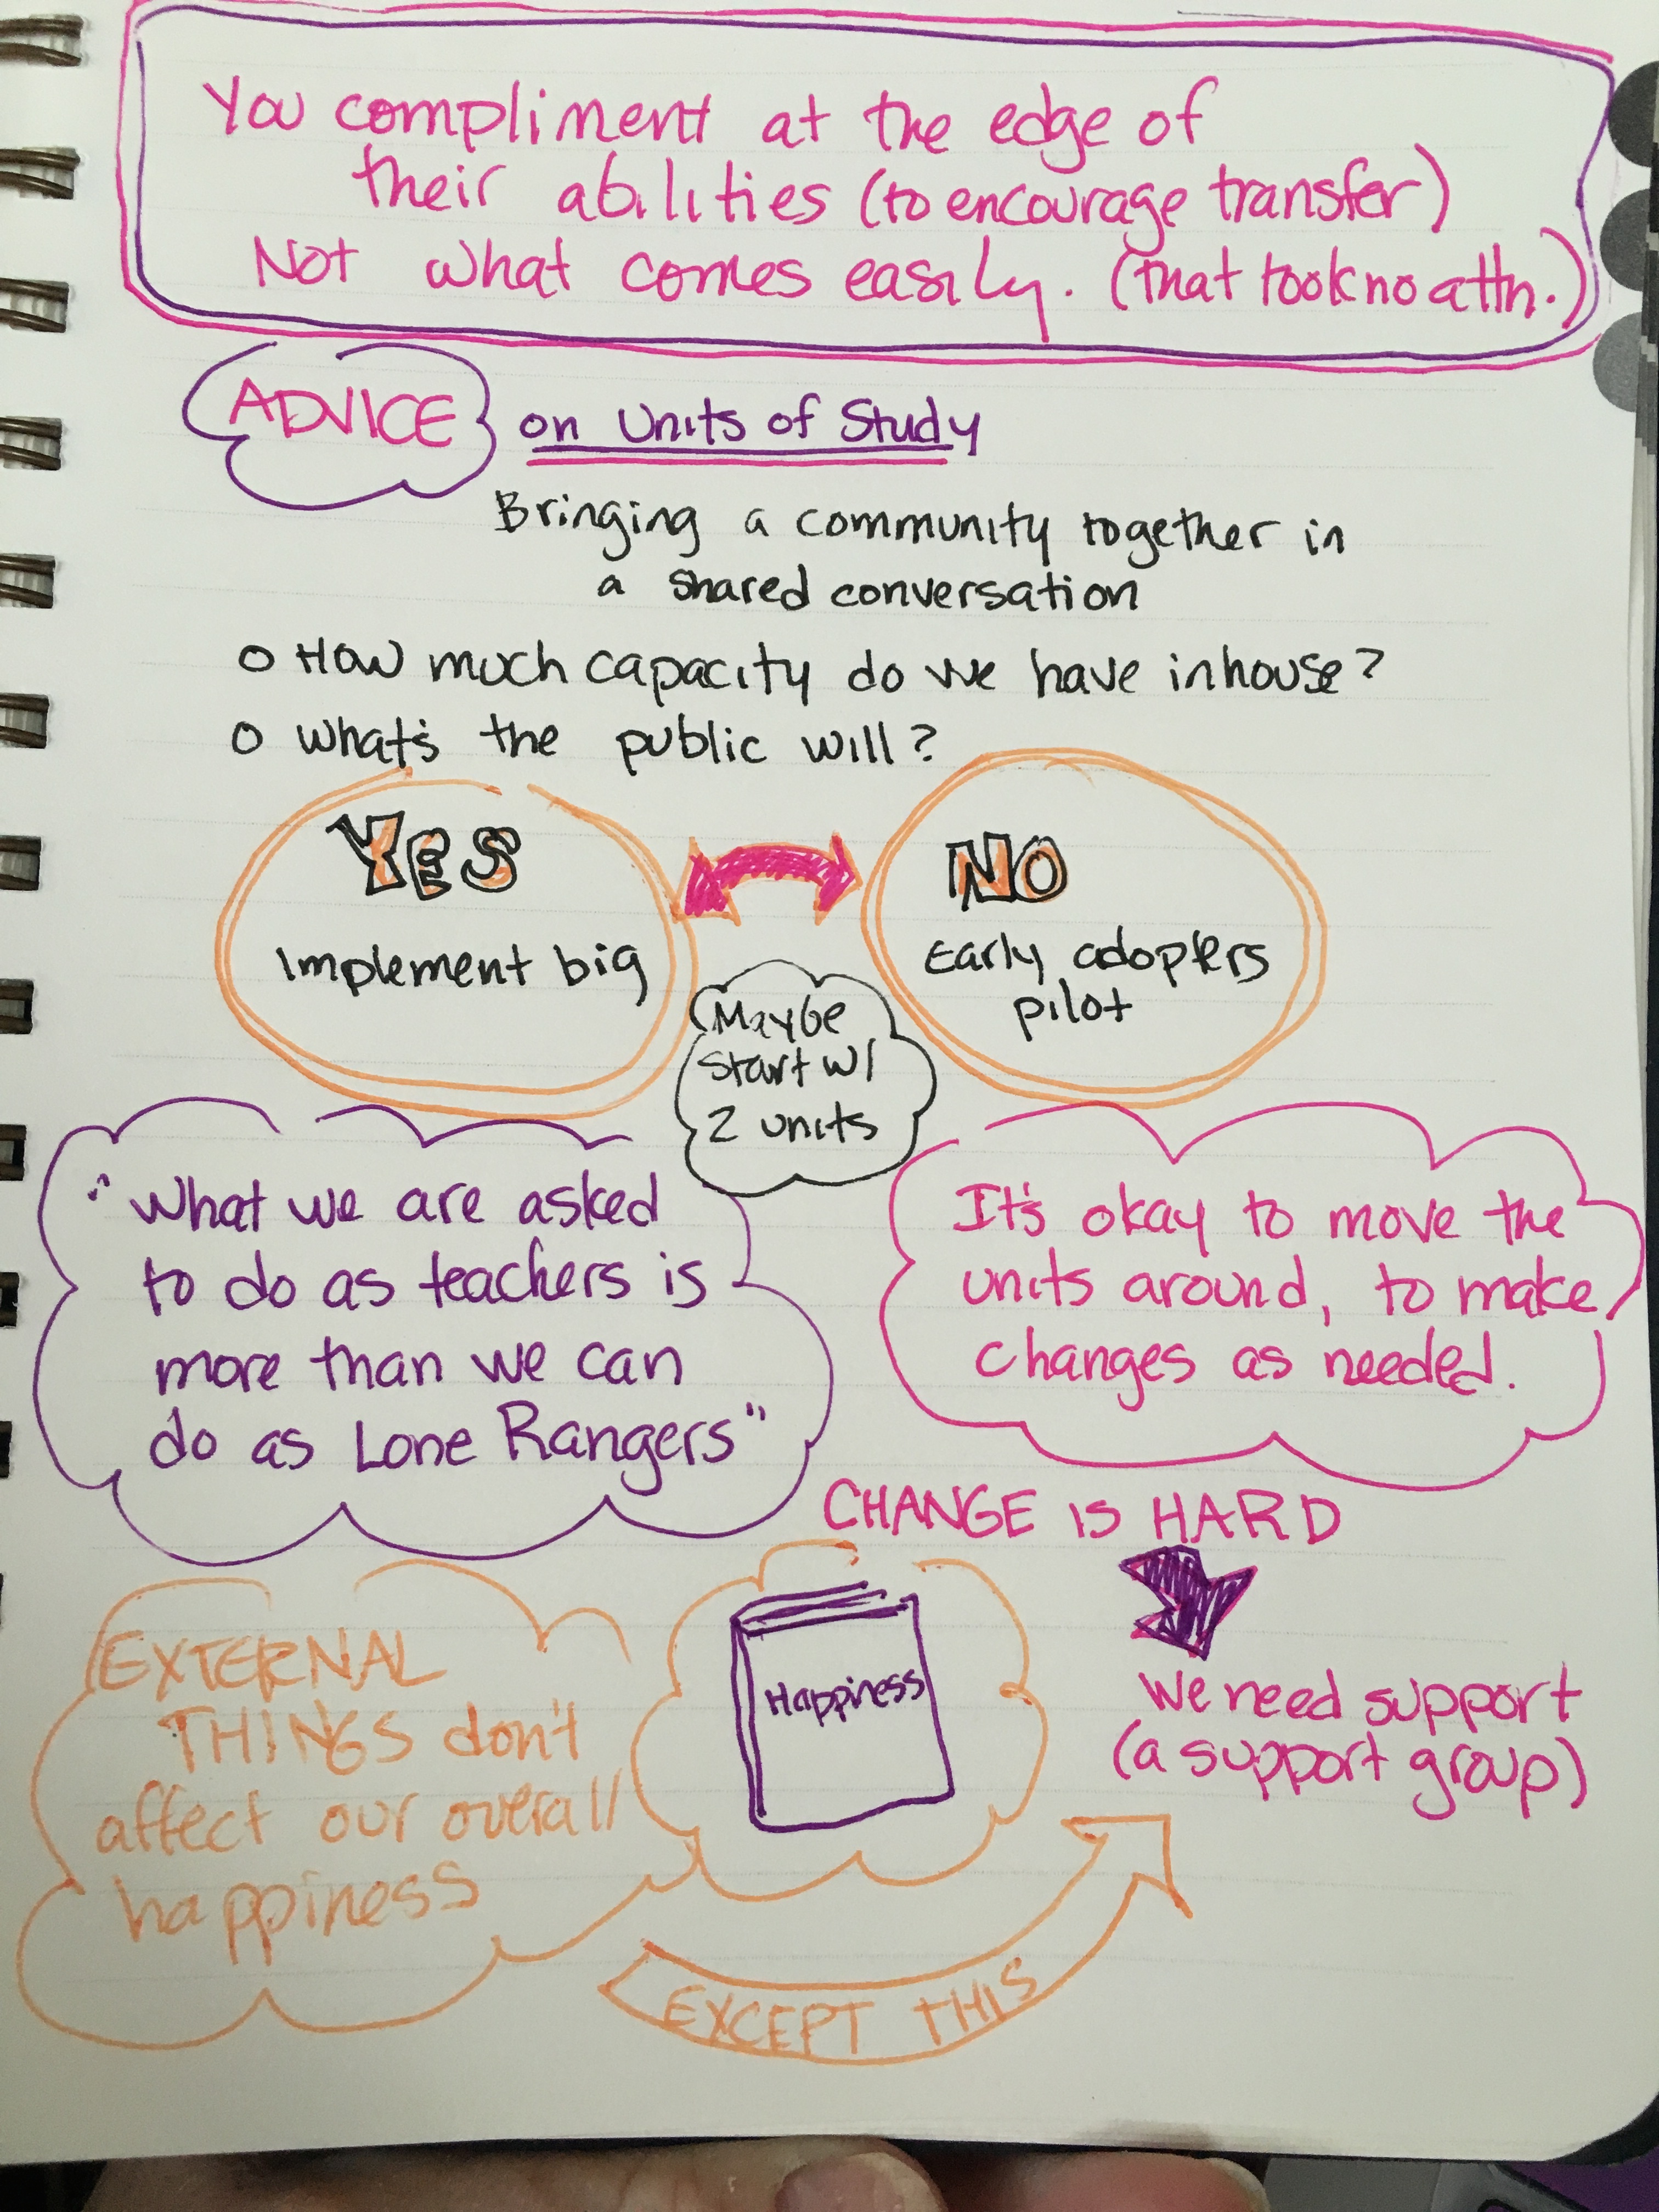 You compliment at the edge of
their abilities (to encourage transfer)
Not what comes easily. (that took no attn.)
ADVICE on Units of Study
Bringing a community together in
a shared conversation
o How much capacity do we have inhouse?
o What's the public will?
YES
Implement big
NO
Early adopters
pilot
Maybe
start w/
2 units
"What we are asked
to do as teachers is
more than we can
do as Lone Rangers"
It's okay to move the
units around, to make
changes as needed.
CHANGE IS HARD
We need support
(a support group)
Happiness
EXTERNAL
THINGS don't
affect our overall
happiness
EXCEPT THIS